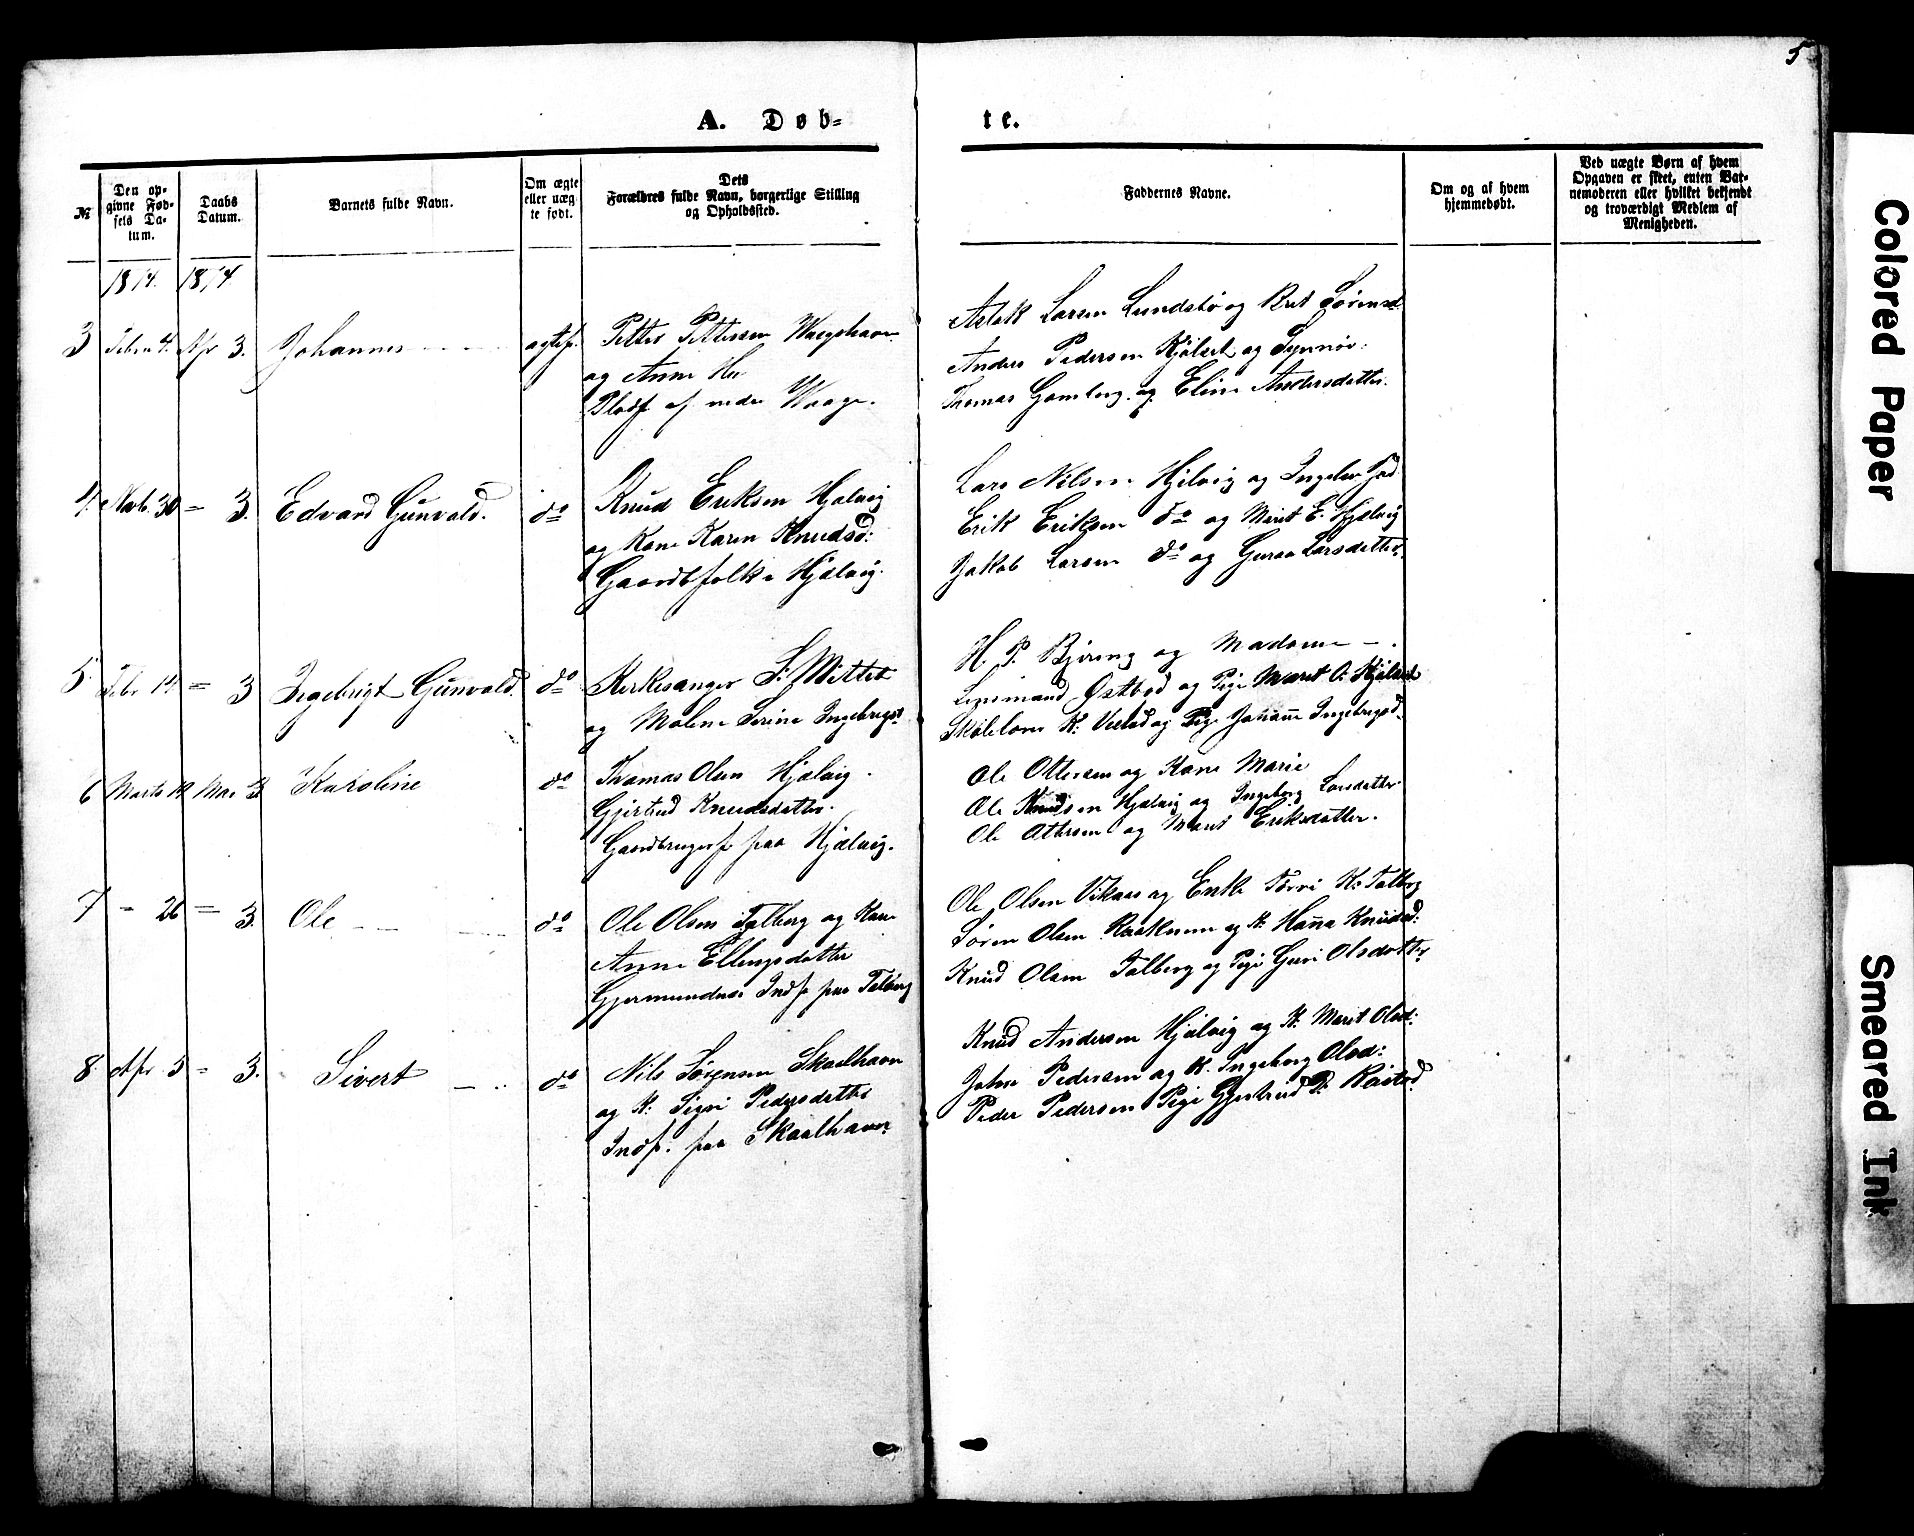 5
A. Døb=
te.
№
Den op=
givne Fød=
sels Da=
tum.
Daabs
Datum.
Barnets fulde Navn.
Om ægte
eller uæg
te født.
Dets
Forældres fulde Navn, borgerlige Stilling
og Opholdssted.
Faddernes Navne.
Om og af hvem
hjemmedøbt.
Ved uægte Børn af hvem
Opgaven er skeet, enten Bar=
nemoderen eller hvilket bekjendt
og troværdigt Medlem af
Menigheden.
1874. 1874
3 Febr 4. Apr 3. Johannes
Petter Pettersen
og Anne
af nedre Waage.
Aslak Larsen Lundebø og
Anders Pedersen og Synnøv
Thomas og Eline Andersdatter.
4. 30 = 3. Edvard Gunvald. do
Knud Eriksen Hjelvig
og Kone Karen Knudsd:
Gaardbfolk Hjelvig.
Lars Nilsen Hjelvig og
Erik Eriksen do og Marit E. Hjelvig
Jakob Larsen do og Guraa Larsdatter
5 Febr 14 = 3 Ingebrigt Gunvald. do
Kirkesanger S. Mittet
og Malene Serine Ingebrigst
H. P. Bjering og Madame
Lensmand Østbød og Pige Marit O.
Skolelærer K. og Pige Johanne Ingebrigsd.
6 Marts 12 Mai 3 Karoline do
Thomas Olsen Hjelvig.
Gjertrud Knudsdatter.
Gaardbrugerf paa Hjelvig.
Ole Ottersen og Kone Marie
Ole Knudsen Hjelvig og Ingeborg Larsdatter
Ole Ottersen og Marit Eriksdatter.
7 - 26 = 3. Ole do
Ole Olsen Talberg og Kone
Anne Ellingsdatter
Gjermundnes Indf paa Talberg
Ole Olsen Vikaas og Enke K. Talberg
Søren Olsen og K. Hanna Knudsd:
Knud Olsen Talberg og Pige Guri Olsdatter
8. Apr 5 = 3. Sivert do
Nils Sørensen Skaalhavn
og K: Sigri Pedersdatter
Indf. paa Skaalhavn
Knud Andersen Hjelvig og K. Marit Olsd:
Johan Pedersen og K. Ingeborg Olsd:
Peder Pedersen Pige Gjertrud P.
Colored Paper
Smeared Ink